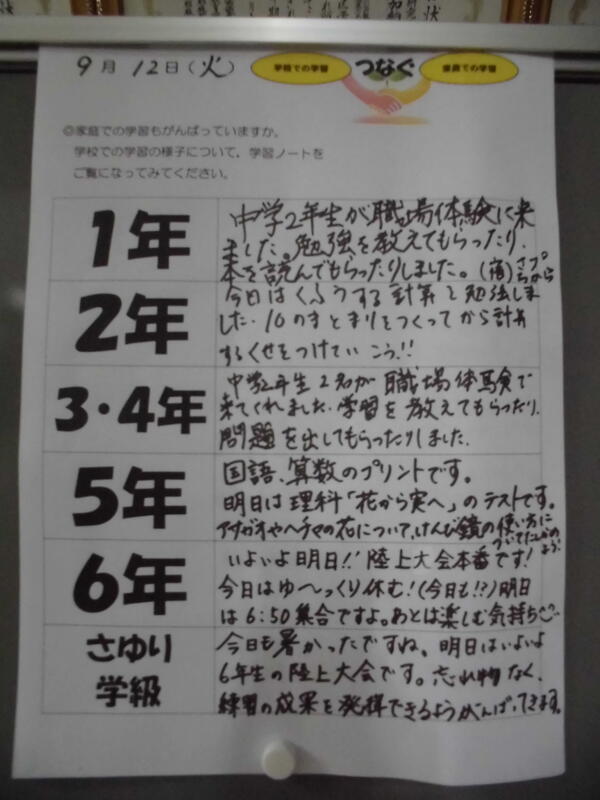 9月 12日(火)
学校での学習 つなぐ 家庭での学習
◎家庭での学習もがんばっていますか。
学校での学習の様子について、学習ノートを
ご覧になってみてください。
1年
中学2年生が職場体験に来
ました。勉強を教えてもらったり、
本を読んでもらったりしました。(宿)さんすうプ
2年
今日はくふうする計算を勉強しま
した。10のまとまりをつくってから計算
するくせをつけていこう!!
3・4年
中学2年生2名が職場体験で
来てくれました。学習を教えてもらったり、
問題を出してもらったりしました。
5年
国語、算数のプリントです。
明日は理科「花から実へ」のテストです。
アサガオやヘチマの花について、けんび鏡の使い方に
ついてたしかめよう!
6年
いよいよ明日!!陸上大会本番です!
今日はゆ〜っくり休む!(今日も!?)明日
は6:50集合ですよ。あとは楽しむ気持ち
さゆり
学級
今日も暑かったですね。明日はいよいよ
6年生の陸上大会です。忘れ物なく、
練習の成果を発揮できるようがんばってきます。